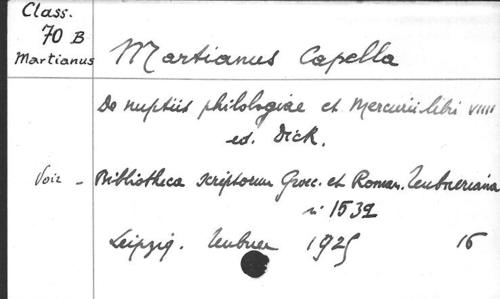 Class.
70 B
Martianus
Martianus Capella
De nuptiis philologiae et Mercurii libri VIIII
ed. Dick.
Voir - Bibliotheca scriptorum Graec. et Roman. Teubneriana
n° 1539
Leipzig. Teubner 1925 16